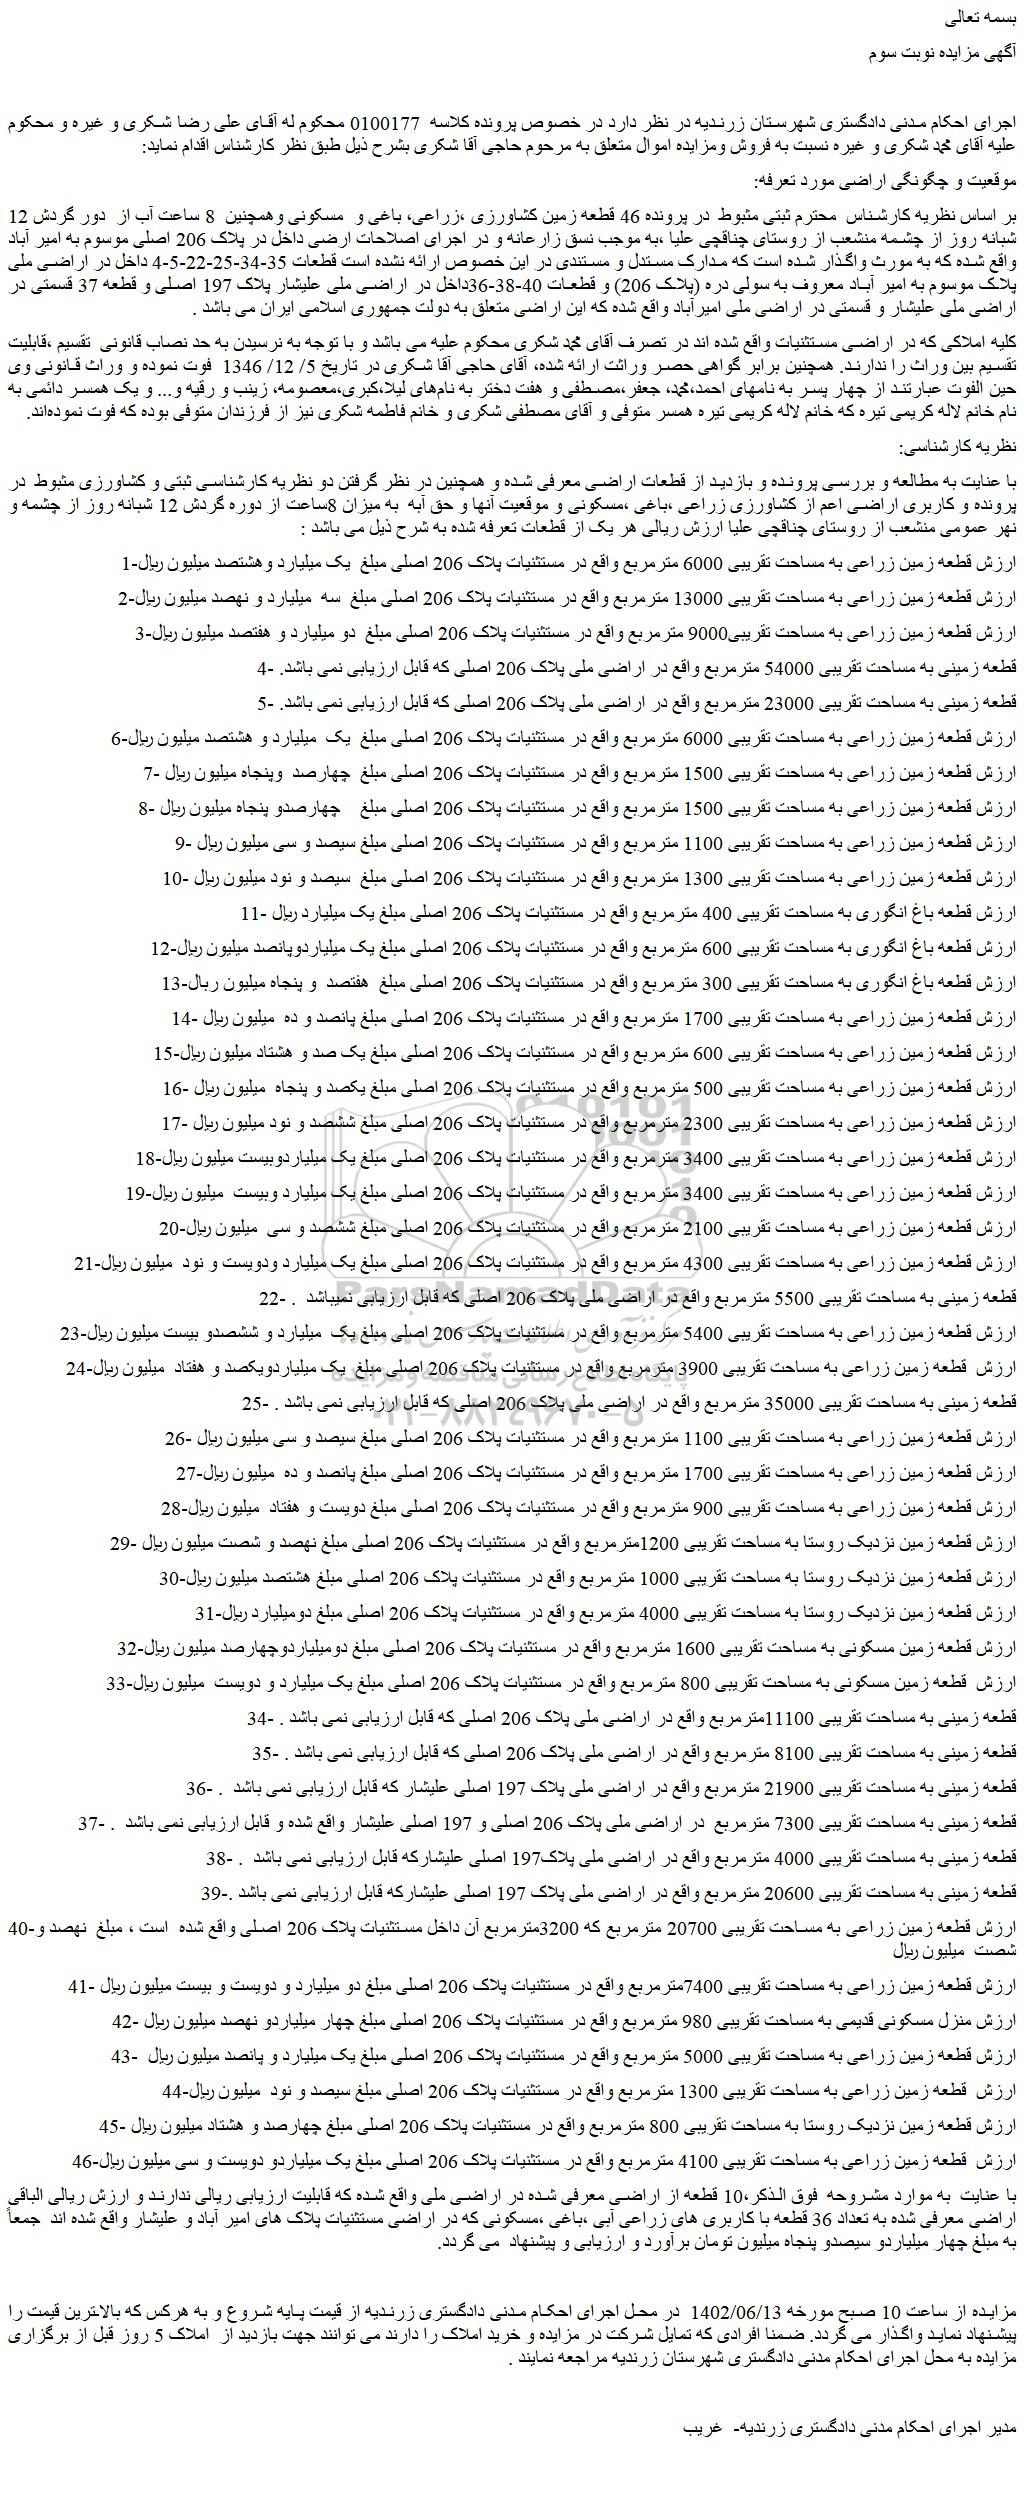 بسمه تعالی
آگهی مزایده نوبت سوم
اجرای احکام مدنی دادگستری شهرستان زرندیه در نظر دارد در خصوص پرونده کلاسه 0100177 محکوم له آقای علی رضا شکری و غیره و محکوم
علیه آقای محمد شکری و غیره نسبت به فروش ومزایده اموال متعلق به مرحوم حاجی آقا شکری بشرح ذیل طبق نظر کارشناس اقدام نماید:
موقعیت و چگونگی اراضی مورد تعرفه:
بر اساس نظریه کارشناس محترم ثبتی مثبوط در پرونده 46 قطعه زمین کشاورزی ،زراعی، باغی و مسکونی وهمچنین 8 ساعت آب از دور گردش 12
شبانه روز از چشمه منشعب از روستای چناقچی علیا ،به موجب نسق زارعانه و در اجرای اصلاحات ارضی داخل در پلاک 206 اصلی موسوم به امیر آباد
واقع شده که به مورث واگذار شده است که مدارک مستدل و مستندی در این خصوص ارائه نشده است قطعات 35-34-25-22-5-4 داخل در اراضی ملی
پلاک موسوم به امیر آباد معروف به سولی دره (پلاک 206) و قطعات 40-38-36داخل در اراضی ملی علیشار پلاک 197 اصلی و قطعه 37 قسمتی در
اراضی ملی علیشار و قسمتی در اراضی ملی امیرآباد واقع شده که این اراضی متعلق به دولت جمهوری اسلامی ایران می باشد .
کلیه املاکی که در اراضی مستثنیات واقع شده اند در تصرف آقای محمد شکری محکوم علیه می باشد و با توجه به نرسیدن به حد نصاب قانونی تقسیم ،قابلیت
تقسیم بین وراث را ندارند. همچنین برابر گواهی حصر وراثت ارائه شده، آقای حاجی آقا شکری در تاریخ 5/ 12/ 1346 فوت نموده و وراث قانونی وی
حین الفوت عبارتند از چهار پسر به نامهای احمد،محمد، جعفر،مصطفی و هفت دختر به نام‌های لیلا،کبری،معصومه، زینب و رقیه و... و یک همسر دائمی به
نام خانم لاله کریمی تیره که خانم لاله کریمی تیره همسر متوفی و آقای مصطفی شکری و خانم فاطمه شکری نیز از فرزندان متوفی بوده که فوت نموده‌اند.
نظریه کارشناسی:
با عنایت به مطالعه و بررسی پرونده و بازدید از قطعات اراضی معرفی شده و همچنین در نظر گرفتن دو نظریه کارشناسی ثبتی و کشاورزی مثبوط در
پرونده و کاربری اراضی اعم از کشاورزی زراعی ،باغی ،مسکونی و موقعیت آنها و حق آبه به میزان 8ساعت از دوره گردش 12 شبانه روز از چشمه و
نهر عمومی منشعب از روستای چناقچی علیا ارزش ریالی هر یک از قطعات تعرفه شده به شرح ذیل می باشد :
ارزش قطعه زمین زراعی به مساحت تقریبی 6000 مترمربع واقع در مستثنیات پلاک 206 اصلی مبلغ یک میلیارد وهشتصد میلیون ریال-1
ارزش قطعه زمین زراعی به مساحت تقریبی 13000 مترمربع واقع در مستثنیات پلاک 206 اصلی مبلغ سه میلیارد و نهصد میلیون ریال-2
ارزش قطعه زمین زراعی به مساحت تقریبی9000 مترمربع واقع در مستثنیات پلاک 206 اصلی مبلغ دو میلیارد و هفتصد میلیون ریال-3
قطعه زمینی به مساحت تقریبی 54000 مترمربع واقع در اراضی ملی پلاک 206 اصلی که قابل ارزیابی نمی باشد. -4
قطعه زمینی به مساحت تقریبی 23000 مترمربع واقع در اراضی ملی پلاک 206 اصلی که قابل ارزیابی نمی باشد. -5
ارزش قطعه زمین زراعی به مساحت تقریبی 6000 مترمربع واقع در مستثنیات پلاک 206 اصلی مبلغ یک میلیارد و هشتصد میلیون ریال-6
ارزش قطعه زمین زراعی به مساحت تقریبی 1500 مترمربع واقع در مستثنیات پلاک 206 اصلی مبلغ چهارصد وپنجاه میلیون ریال -7
ارزش قطعه زمین زراعی به مساحت تقریبی 1500 مترمربع واقع در مستثنیات پلاک 206 اصلی مبلغ چهارصدو پنجاه میلیون ریال -8
ارزش قطعه زمین زراعی به مساحت تقریبی 1100 مترمربع واقع در مستثنیات پلاک 206 اصلی مبلغ سیصد و سی میلیون ریال -9
ارزش قطعه زمین زراعی به مساحت تقریبی 1300 مترمربع واقع در مستثنیات پلاک 206 اصلی مبلغ سیصد و نود میلیون ریال -10
ارزش قطعه باغ انگوری به مساحت تقریبی 400 مترمربع واقع در مستثنیات پلاک 206 اصلی مبلغ یک میلیارد ریال -11
ارزش قطعه باغ انگوری به مساحت تقریبی 600 مترمربع واقع در مستثنیات پلاک 206 اصلی مبلغ یک میلیاردوپانصد میلیون ریال-12
ارزش قطعه باغ انگوری به مساحت تقریبی 300 مترمربع واقع در مستثنیات پلاک 206 اصلی مبلغ هفتصد و پنجاه میلیون ربال-13
ارزش قطعه زمین زراعی به مساحت تقریبی 1700 مترمربع واقع در مستثنیات پلاک 206 اصلی مبلغ پانصد و ده میلیون ریال -14
ارزش قطعه زمین زراعی به مساحت تقریبی 600 مترمربع واقع در مستثنیات پلاک 206 اصلی مبلغ یک صد و هشتاد میلیون ریال-15
ارزش قطعه زمین زراعی به مساحت تقریبی 500 مترمربع واقع در مستثنیات پلاک 206 اصلی مبلغ یکصد و پنجاه میلیون ریال -16
ارزش قطعه زمین زراعی به مساحت تقریبی 2300 مترمربع واقع در مستثنیات پلاک 206 اصلی مبلغ ششصد و نود میلیون ریال -17
ارزش قطعه زمین زراعی به مساحت تقریبی 3400 مترمربع واقع در مستثنیات پلاک 206 اصلی مبلغ یک میلیاردوبیست میلیون ریال-18
ارزش قطعه زمین زراعی به مساحت تقریبی 3400 مترمربع واقع در مستثنیات پلاک 206 اصلی مبلغ یک میلیارد وبیست میلیون ریال-19
ارزش قطعه زمین زراعی به مساحت تقریبی 2100 مترمربع واقع در مستثنیات پلاک 206 اصلی مبلغ ششصد و سی میلیون ریال-20
ارزش قطعه زمین زراعی به مساحت تقریبی 4300 مترمربع واقع در مستثنیات پلاک 206 اصلی مبلغ یک میلیارد ودویست و نود میلیون ریال-21
قطعه زمینی به مساحت تقریبی 5500 مترمربع واقع در اراضی ملی پلاک 206 اصلی که قابل ارزیابی نمیباشد . -22
ارزش قطعه زمین زراعی به مساحت تقریبی 5400 مترمربع واقع در مستثنیات پلاک 206 اصلی مبلغ یک میلیارد و ششصدو بیست میلیون ریال-23
ارزش قطعه زمین زراعی به مساحت تقریبی 3900 مترمربع واقع در مستثنیات پلاک 206 اصلی مبلغ یک میلیاردویکصد و هفتاد میلیون ریال-24
قطعه زمینی به مساحت تقریبی 35000 مترمربع واقع در اراضی ملی پلاک 206 اصلی که قابل ارزیابی نمی باشد . -25
ارزش قطعه زمین زراعی به مساحت تقریبی 1100 مترمربع واقع در مستثنیات پلاک 206 اصلی مبلغ سیصد و سی میلیون ریال -26
ارزش قطعه زمین زراعی به مساحت تقریبی 1700 مترمربع واقع در مستثنیات پلاک 206 اصلی مبلغ پانصد و ده میلیون ریال-27
ارزش قطعه زمین زراعی به مساحت تقریبی 900 مترمربع واقع در مستثنیات پلاک 206 اصلی مبلغ دویست و هفتاد میلیون ریال-28
ارزش قطعه زمین نزدیک روستا به مساحت تقریبی 1200مترمربع واقع در مستثنیات پلاک 206 اصلی مبلغ نهصد و شصت میلیون ریال -29
ارزش قطعه زمین نزدیک روستا به مساحت تقریبی 1000 مترمربع واقع در مستثنیات پلاک 206 اصلی مبلغ هشتصد میلیون ریال-30
ارزش قطعه زمین نزدیک روستا به مساحت تقریبی 4000 مترمربع واقع در مستثنیات پلاک 206 اصلی مبلغ دومیلیارد ریال-31
ارزش قطعه زمین مسکونی به مساحت تقریبی 1600 مترمربع واقع در مستثنیات پلاک 206 اصلی مبلغ دومیلیاردوچهارصد میلیون ریال-32
ارزش قطعه زمین مسکونی به مساحت تقریبی 800 مترمربع واقع در مستثنیات پلاک 206 اصلی مبلغ یک میلیارد و دویست میلیون ریال-33
قطعه زمینی به مساحت تقریبی 11100مترمربع واقع در اراضی ملی پلاک 206 اصلی که قابل ارزیابی نمی باشد . -34
قطعه زمینی به مساحت تقریبی 8100 مترمربع واقع در اراضی ملی پلاک 206 اصلی که قابل ارزیابی نمی باشد . -35
قطعه زمینی به مساحت تقریبی 21900 مترمربع واقع در اراضی ملی پلاک 197 اصلی علیشار که قابل ارزیابی نمی باشد . -36
قطعه زمینی به مساحت تقریبی 7300 مترمربع در اراضی ملی پلاک 206 اصلی و 197 اصلی علیشار واقع شده و قابل ارزیابی نمی باشد . -37
قطعه زمینی به مساحت تقریبی 4000 مترمربع واقع در اراضی ملی پلاک197 اصلی علیشارکه قابل ارزیابی نمی باشد . -38
قطعه زمینی به مساحت تقریبی 20600 مترمربع واقع در اراضی ملی پلاک 197 اصلی علیشارکه قابل ارزیابی نمی باشد .-39
ارزش قطعه زمین زراعی به مساحت تقریبی 20700 مترمربع که 3200مترمربع آن داخل مستثنیات پلاک 206 اصلی واقع شده است ، مبلغ نهصد و-40
شصت میلیون ریال
ارزش قطعه زمین زراعی به مساحت تقریبی 7400مترمربع واقع در مستثنیات پلاک 206 اصلی مبلغ دو میلیارد و دویست و بیست میلیون ریال -41
ارزش منزل مسکونی قدیمی به مساحت تقریبی 980 مترمربع واقع در مستثنیات پلاک 206 اصلی مبلغ چهار میلیاردو نهصد میلیون ریال -42
ارزش قطعه زمین زراعی به مساحت تقریبی 5000 مترمربع واقع در مستثنیات پلاک 206 اصلی مبلغ یک میلیارد و پانصد میلیون ریال -43
ارزش قطعه زمین زراعی به مساحت تقریبی 1300 مترمربع واقع در مستثنیات پلاک 206 اصلی مبلغ سیصد و نود میلیون ریال-44
ارزش قطعه زمین نزدیک روستا به مساحت تقریبی 800 مترمربع واقع در مستثنیات پلاک 206 اصلی مبلغ چهارصد و هشتاد میلیون ریال -45
ارزش قطعه زمین زراعی به مساحت تقریبی 4100 مترمربع واقع در مستثنیات پلاک 206 اصلی مبلغ یک میلیاردو دویست و سی میلیون ریال-46
با عنایت به موارد مشروحه فوق الذکر،10 قطعه از اراضی معرفی شده در اراضی ملی واقع شده که قابلیت ارزیابی ریالی ندارند و ارزش ریالی الباقی
اراضی معرفی شده به تعداد 36 قطعه با کاربری های زراعی آبی ،باغی ،مسکونی که در اراضی مستثنیات پلاک های امیر آباد و علیشار واقع شده اند جمعاً
به مبلغ چهار میلیاردو سیصدو پنجاه میلیون تومان برآورد و ارزیابی و پیشنهاد می گردد.
مزایده از ساعت 10 صبح مورخه 1402/06/13 در محل اجرای احکام مدنی دادگستری زرندیه از قیمت پایه شروع و به هرکس که بالاترین قیمت را
پیشنهاد نماید واگذار می گردد. ضمنا افرادی که تمایل شرکت در مزایده و خرید املاک را دارند می توانند جهت بازدید از املاک 5 روز قبل از برگزاری
مزایده به محل اجرای احکام مدنی دادگستری شهرستان زرندیه مراجعه نمایند .
مدیر اجرای احکام مدنی دادگستری زرندیه- غریب
ParsNamadData
پایگاه اطلاع رسانی مناقصه و مزایده
۰۲۱-۸۸۳۴۹۶۷۰-۵